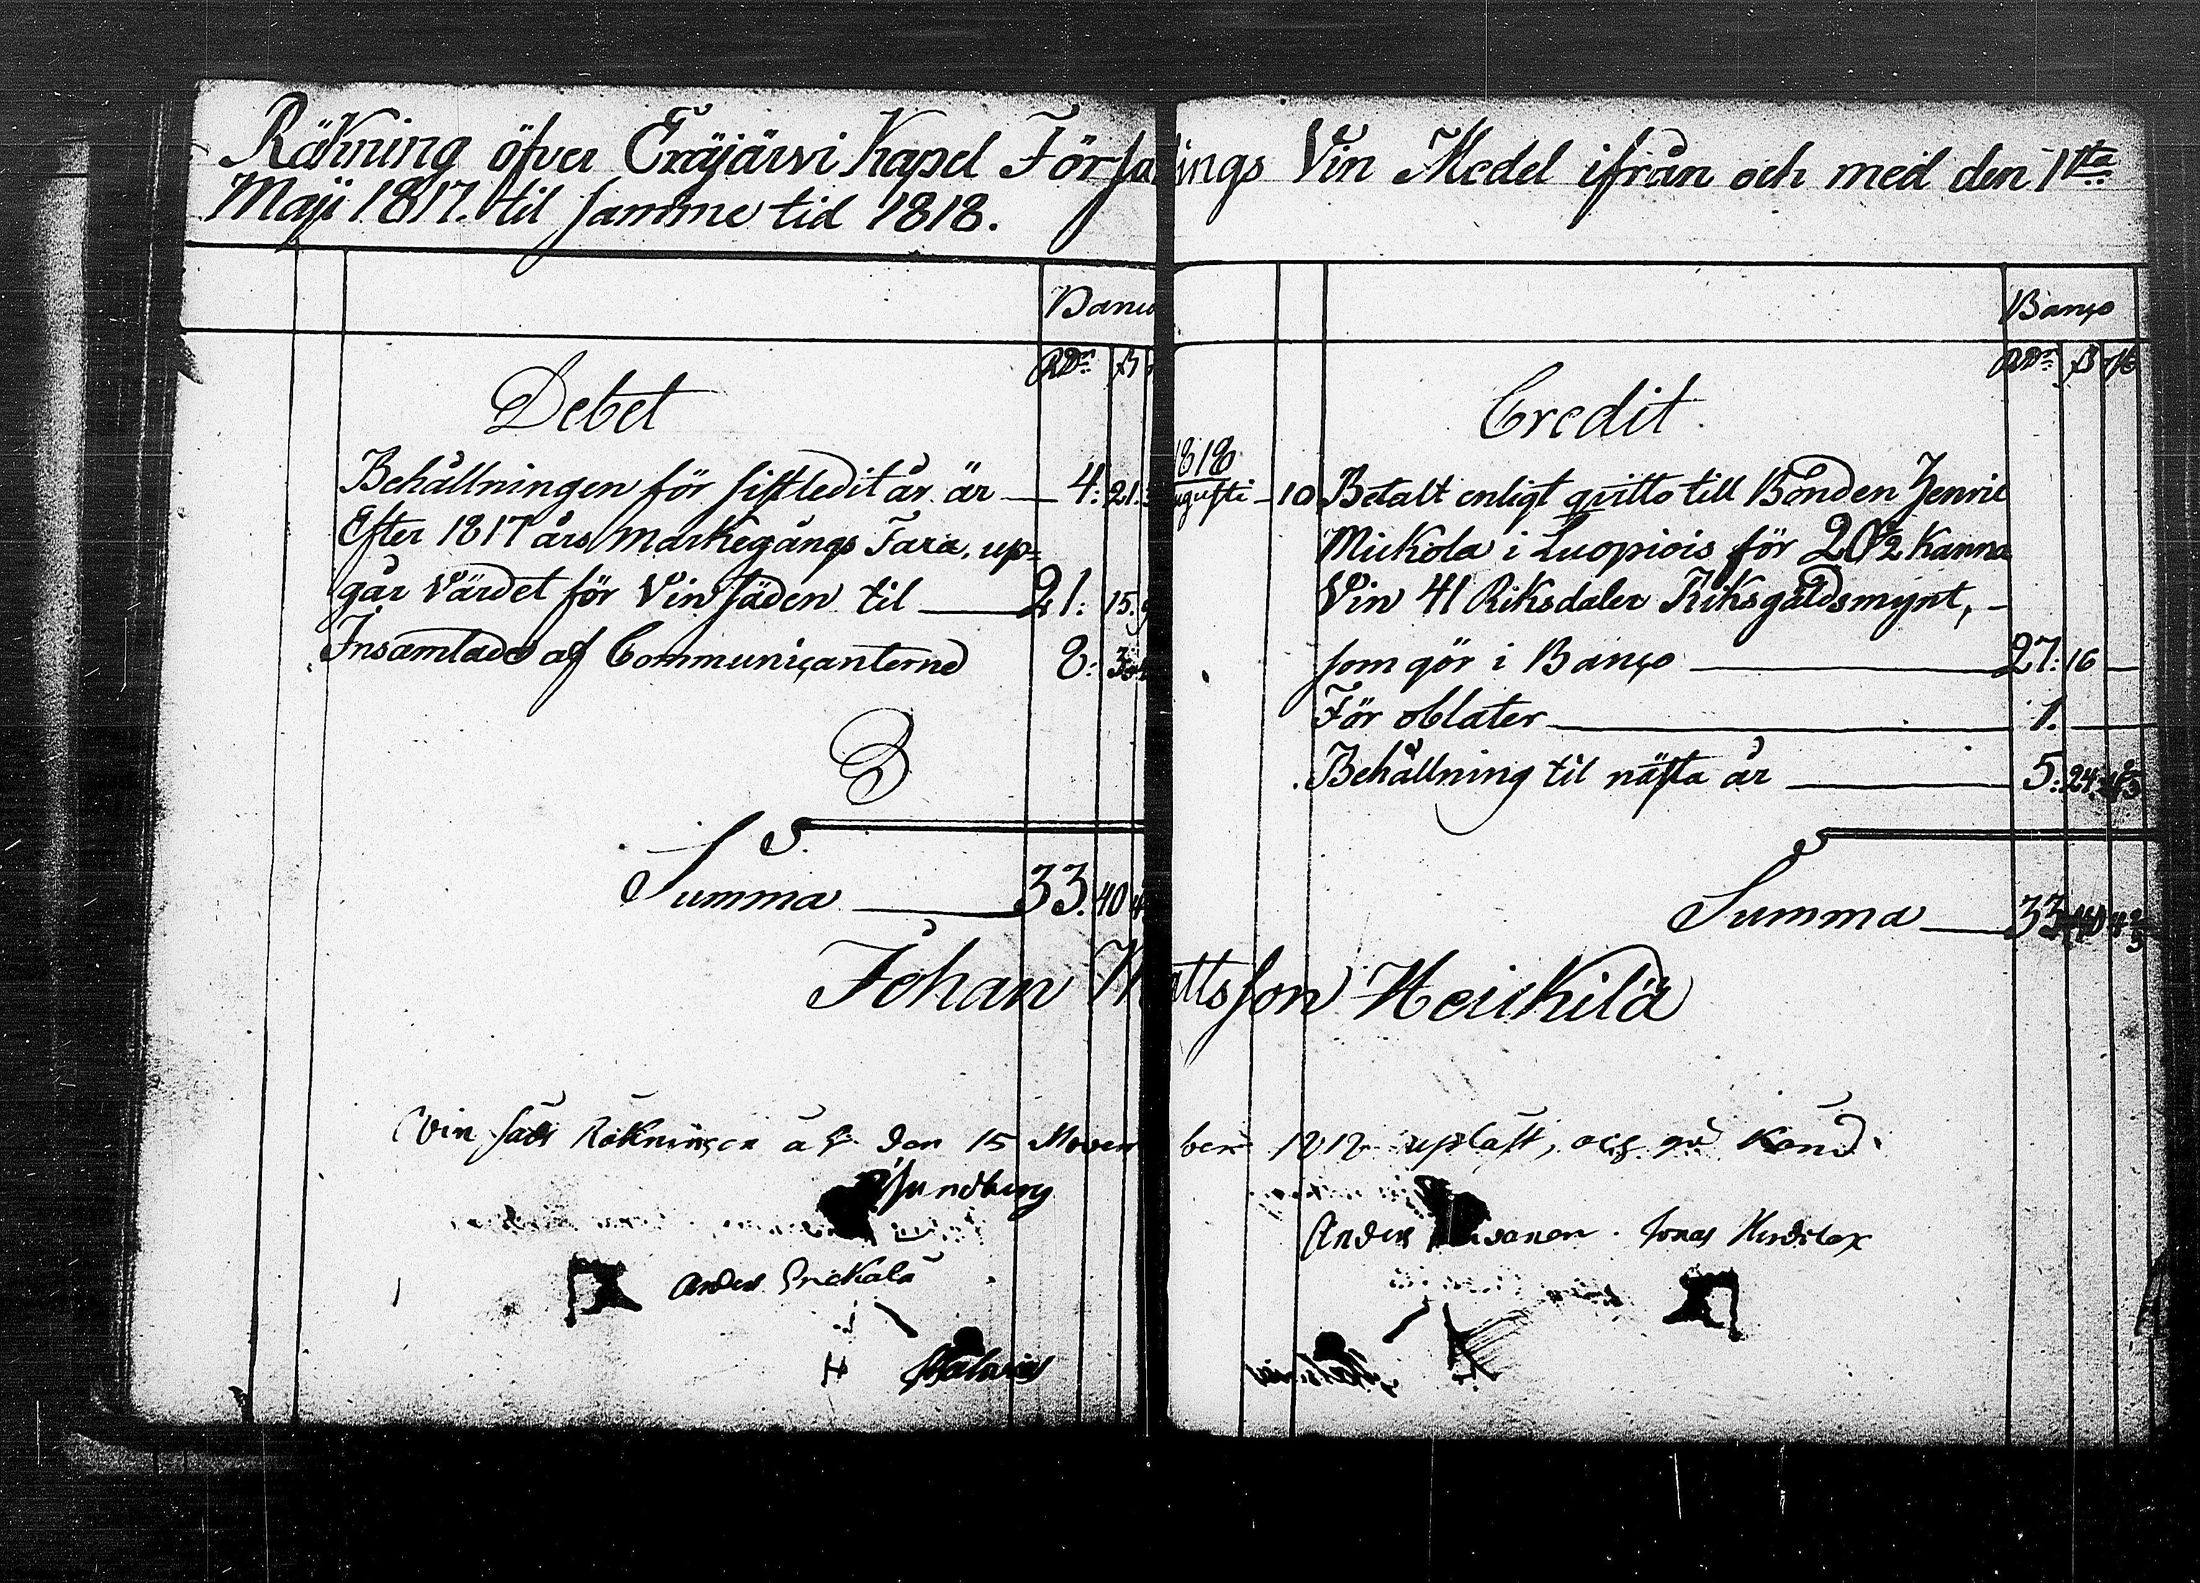 Räkning öfver Eräjärvi Kapel Församlings Vin Medel ifrån och med den 1sta
Maji 1817. til samme tid 1818.
Banco
RDr ß
Debet
Behållningen för sistledit år är — 4: 21.
Efter 1817 års Markegångs Taxa, up=
går Värdet för Vin säden til — 21: 15.
Insamlade af Communicanterne 8:
Summa — 33. 40
Banco
RDr ß rst
Credit
1818
Augusti – 10 Betalt enligt qvitto till Bonden Henric
Mickola i Luopiois för 20½ Kanna
Vin 41 Riksdaler Riksgäldsmynt, –
som gör i Banco — 27: 16 —
För oblater — 1. —
Behållning til nästa år — 5: 24.
Summa — 33 40 4⅔
Johan Mattsson Heickilä
Vin säds Räkningen är den 15 November 1818 upläst, och god Känd.
Sundberg
Anders Jonas
Anders Erickala